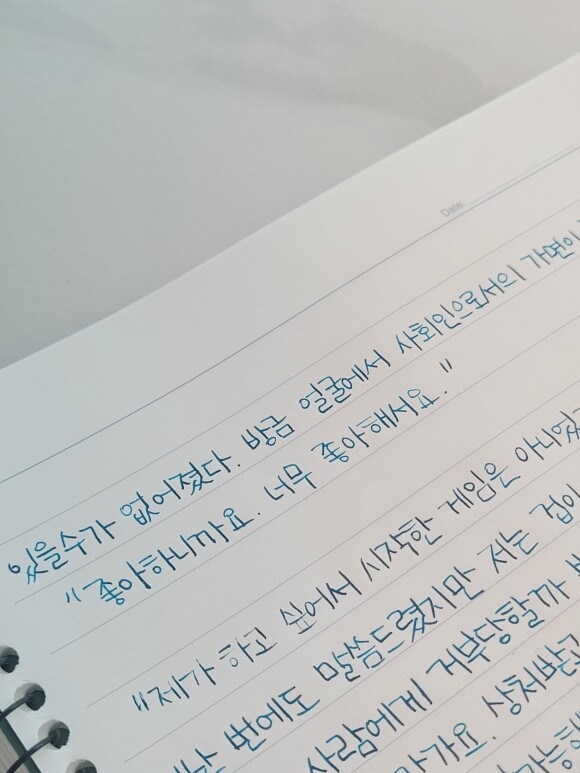 Date.
있을수가 없어졌다. 방금 얼굴에서 사회인으로서의 가면이
"좋아하니까요. 너무 좋아해서요."
"제가 하고 싶어서 시작한 게임은 아니었
번에도 말씀드렸지만 저는 겁이
사람에게 거부당할까
가요. 상처받곤